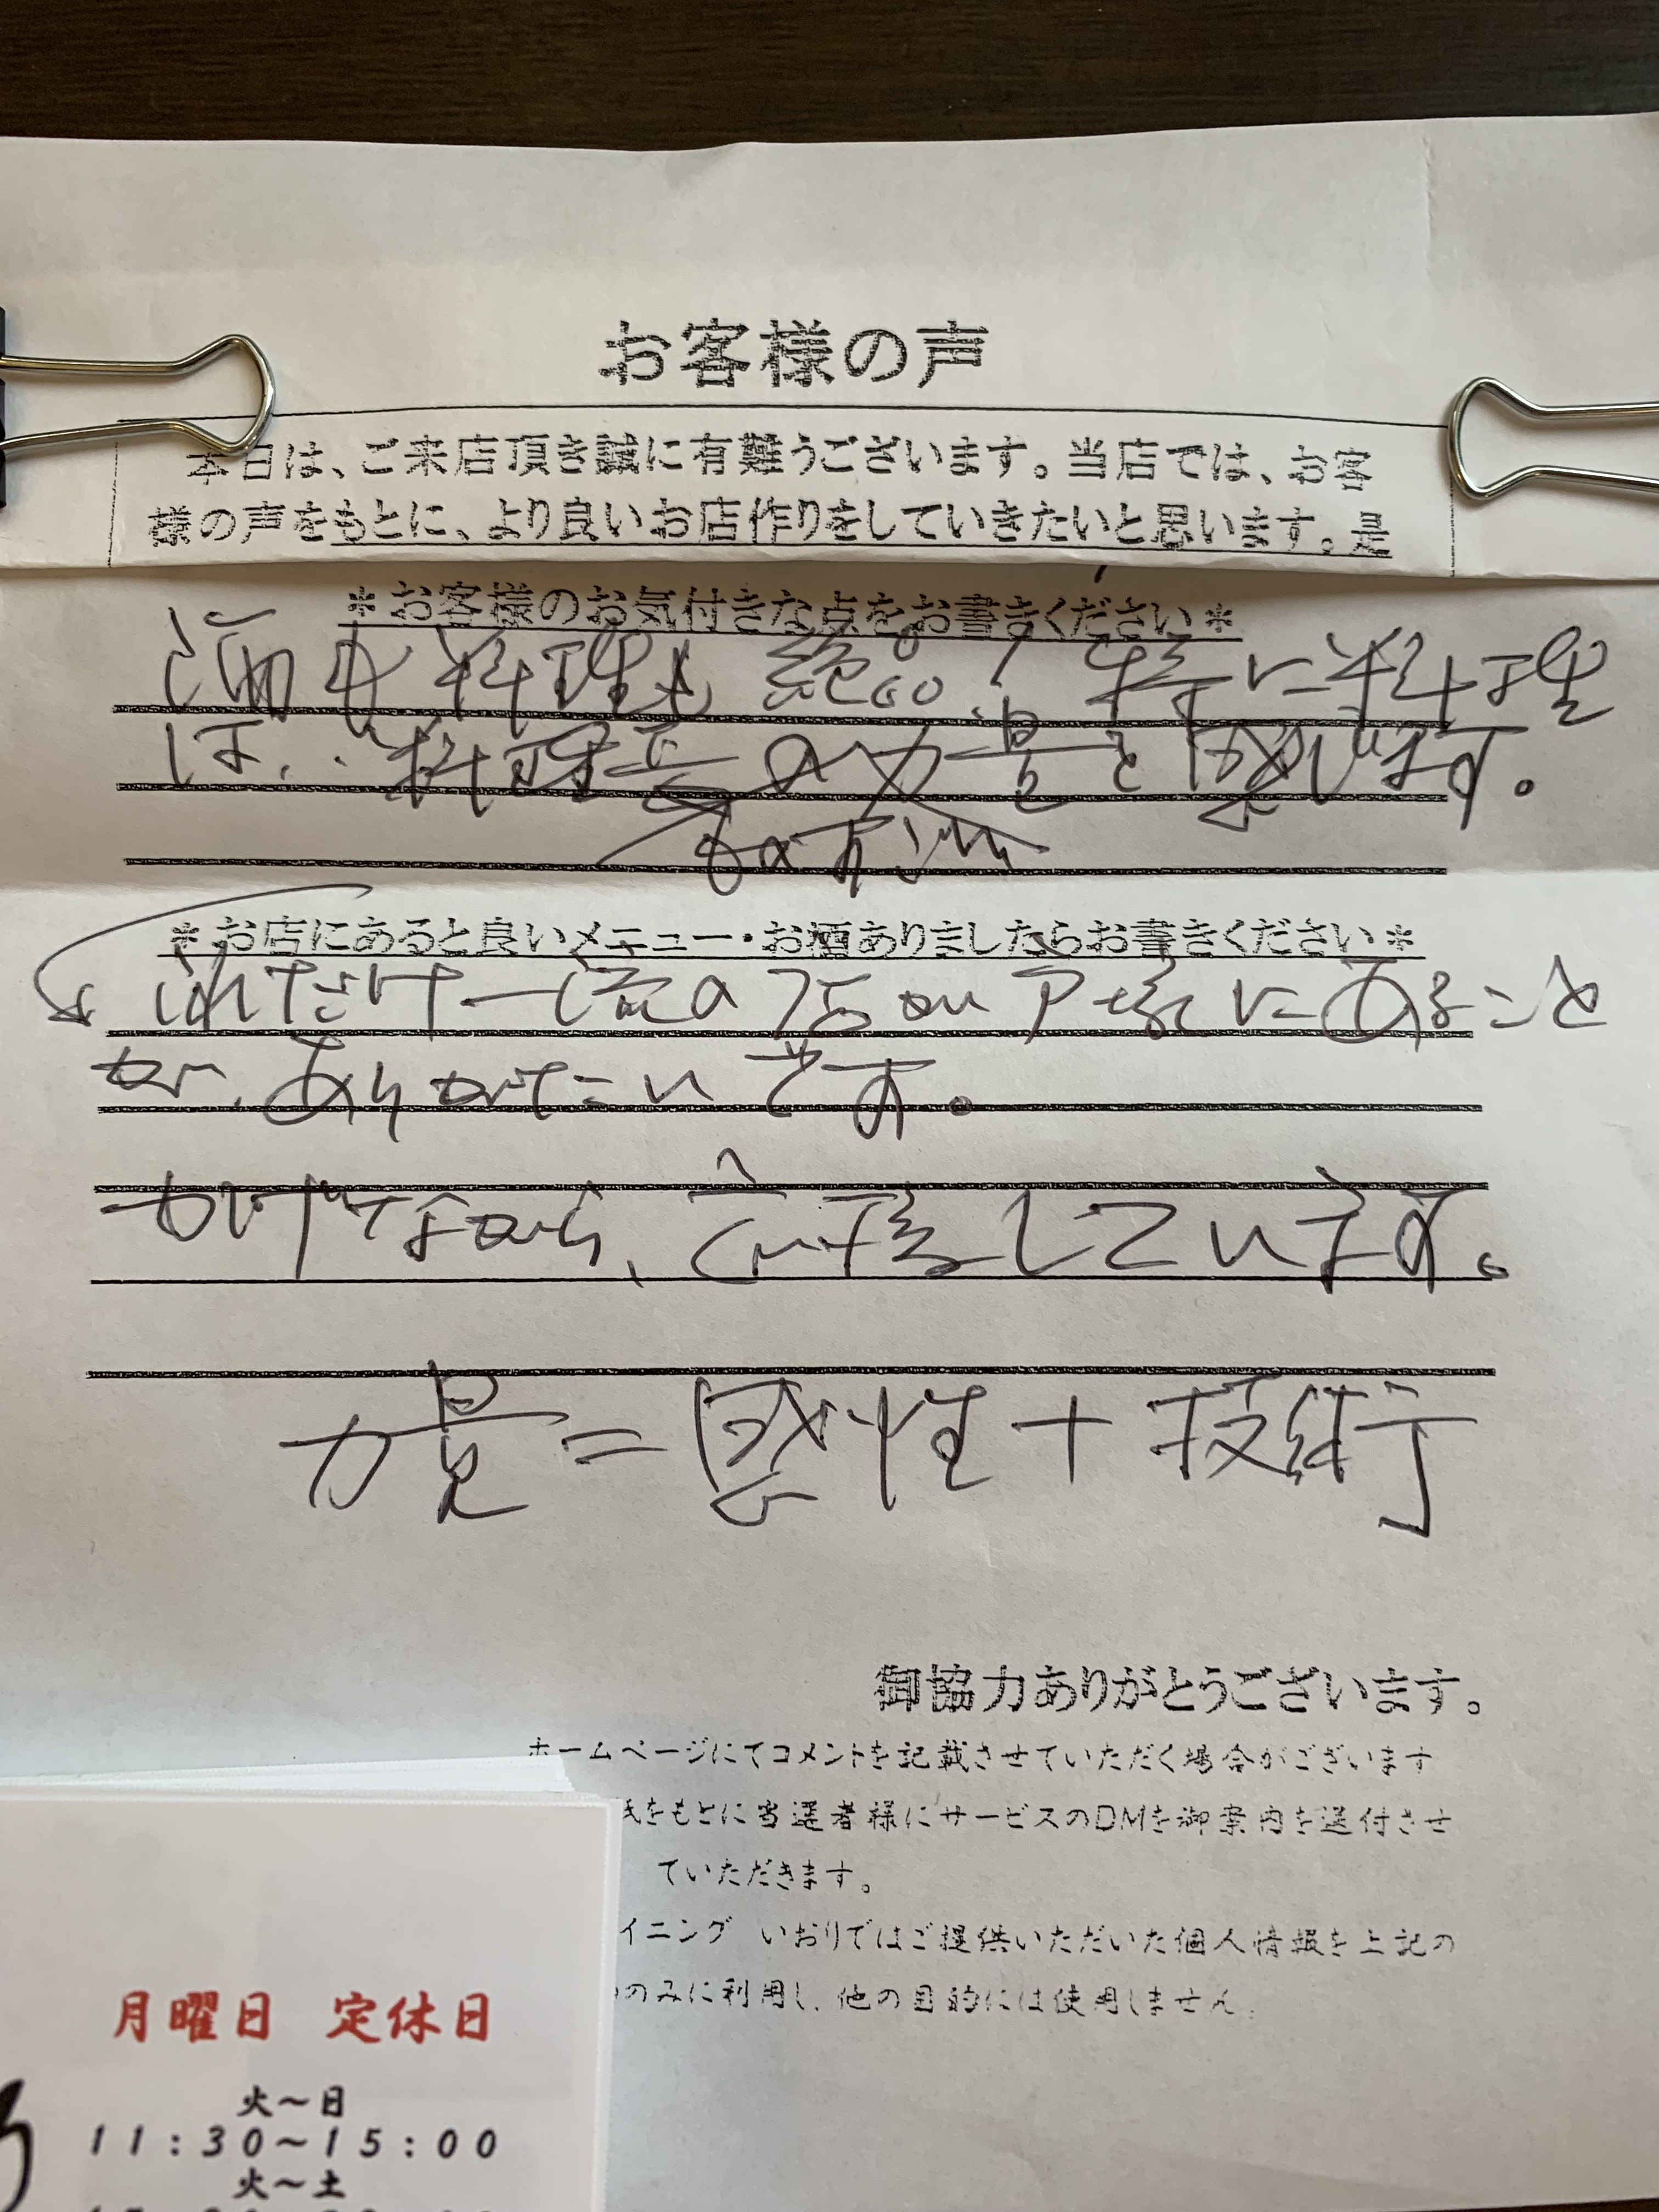 お客様の声
本日は、ご来店頂き誠に有難うございます。当店では、お客
様の声をもとに、より良いお店作りをしていきたいと思います。是
＊お客様のお気付きな点をお書きください＊
酒も料理も絶品！特に料理
は、料理長の力量を感じます。
＊お店にあると良いメニュー・お酒ありましたらお書きください＊
これだけ一流の店が戸塚にあること
が、ありがたいです。
かげながら、応援しています。
力量＝感性＋技術
御協力ありがとうございます。
ホームページにてコメントを記載させていただく場合がございます
をもとに当選者様にサービスのDMを御案内を送付させ
ていただきます。
イニング いおりではご提供いただいた個人情報を上記の
のみに利用し、他の目的には使用しません。
月曜日 定休日
火～日
11:30～15:00
火～土